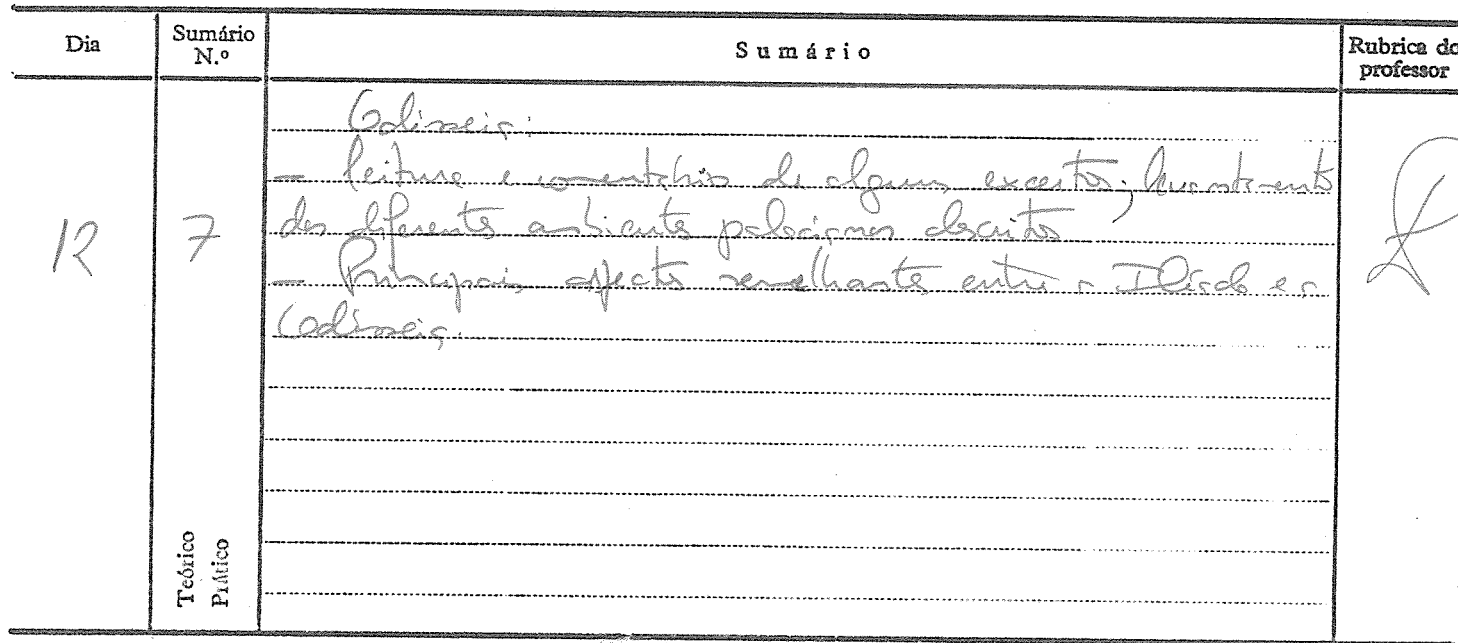 Dia
Sumário N.º
Sumário
Rubrica do professor
12
7
Odisseia:
– leitura e comentário de alguns excertos; levantamento
dos diferentes ambientes palacianos descritos
– Principais aspectos semelhantes entre a Ilíada e a
Odisseia.
Teórico
Prático